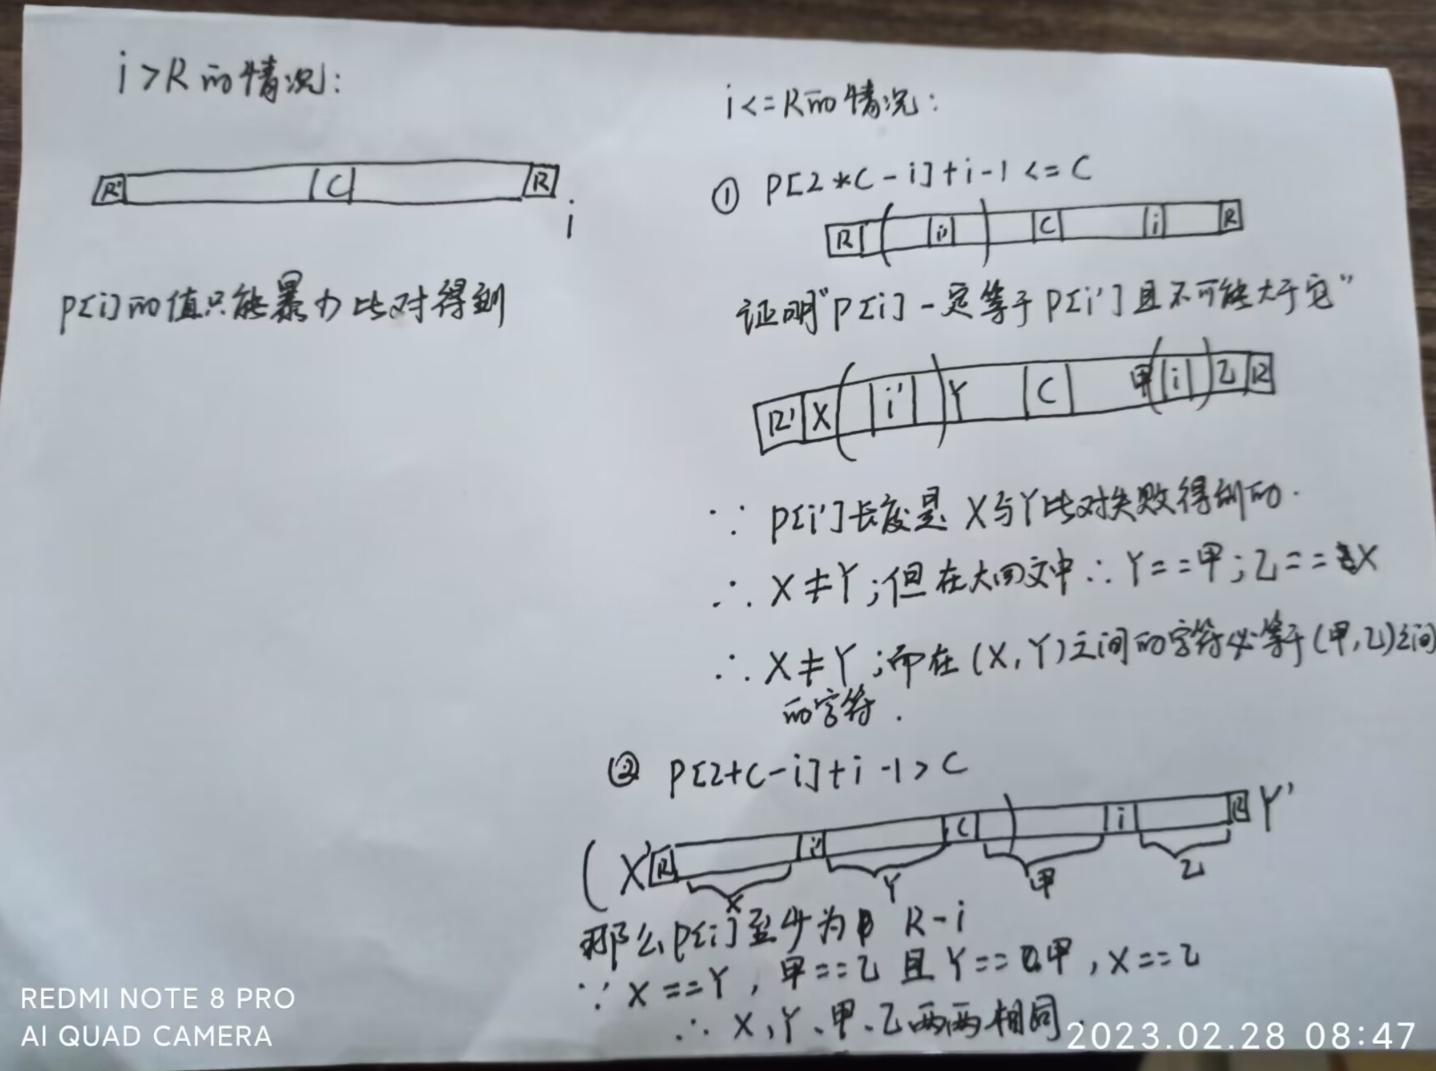 i>R的情况:
R' C R
i
P[i]的值只能暴力比对得到
i<=R的情况:
① P[2*C-i]+i-1<=C
R ( i' ) C i R
证明"P[i]一定等于P[i']且不可能大于它"
R' X ( i' ) Y C 甲 ( i ) 乙 R
∵ P[i']长度是X与Y比对失败得到的.
∴ X≠Y;但在大回文中∴Y==甲;乙==X
∴ X≠Y;而在(X,Y)之间的字符必等于(甲,乙)之间
的字符.
② P[2+C-i]+i-1>C
( X' R i' C ) i R Y'
X Y 甲 乙
那么P[i]至少为 R-i
∵ X==Y, 甲==乙 且 Y==甲, X==乙
∴ X、Y、甲、乙两两相同.
REDMI NOTE 8 PRO
AI QUAD CAMERA
2023.02.28 08:47